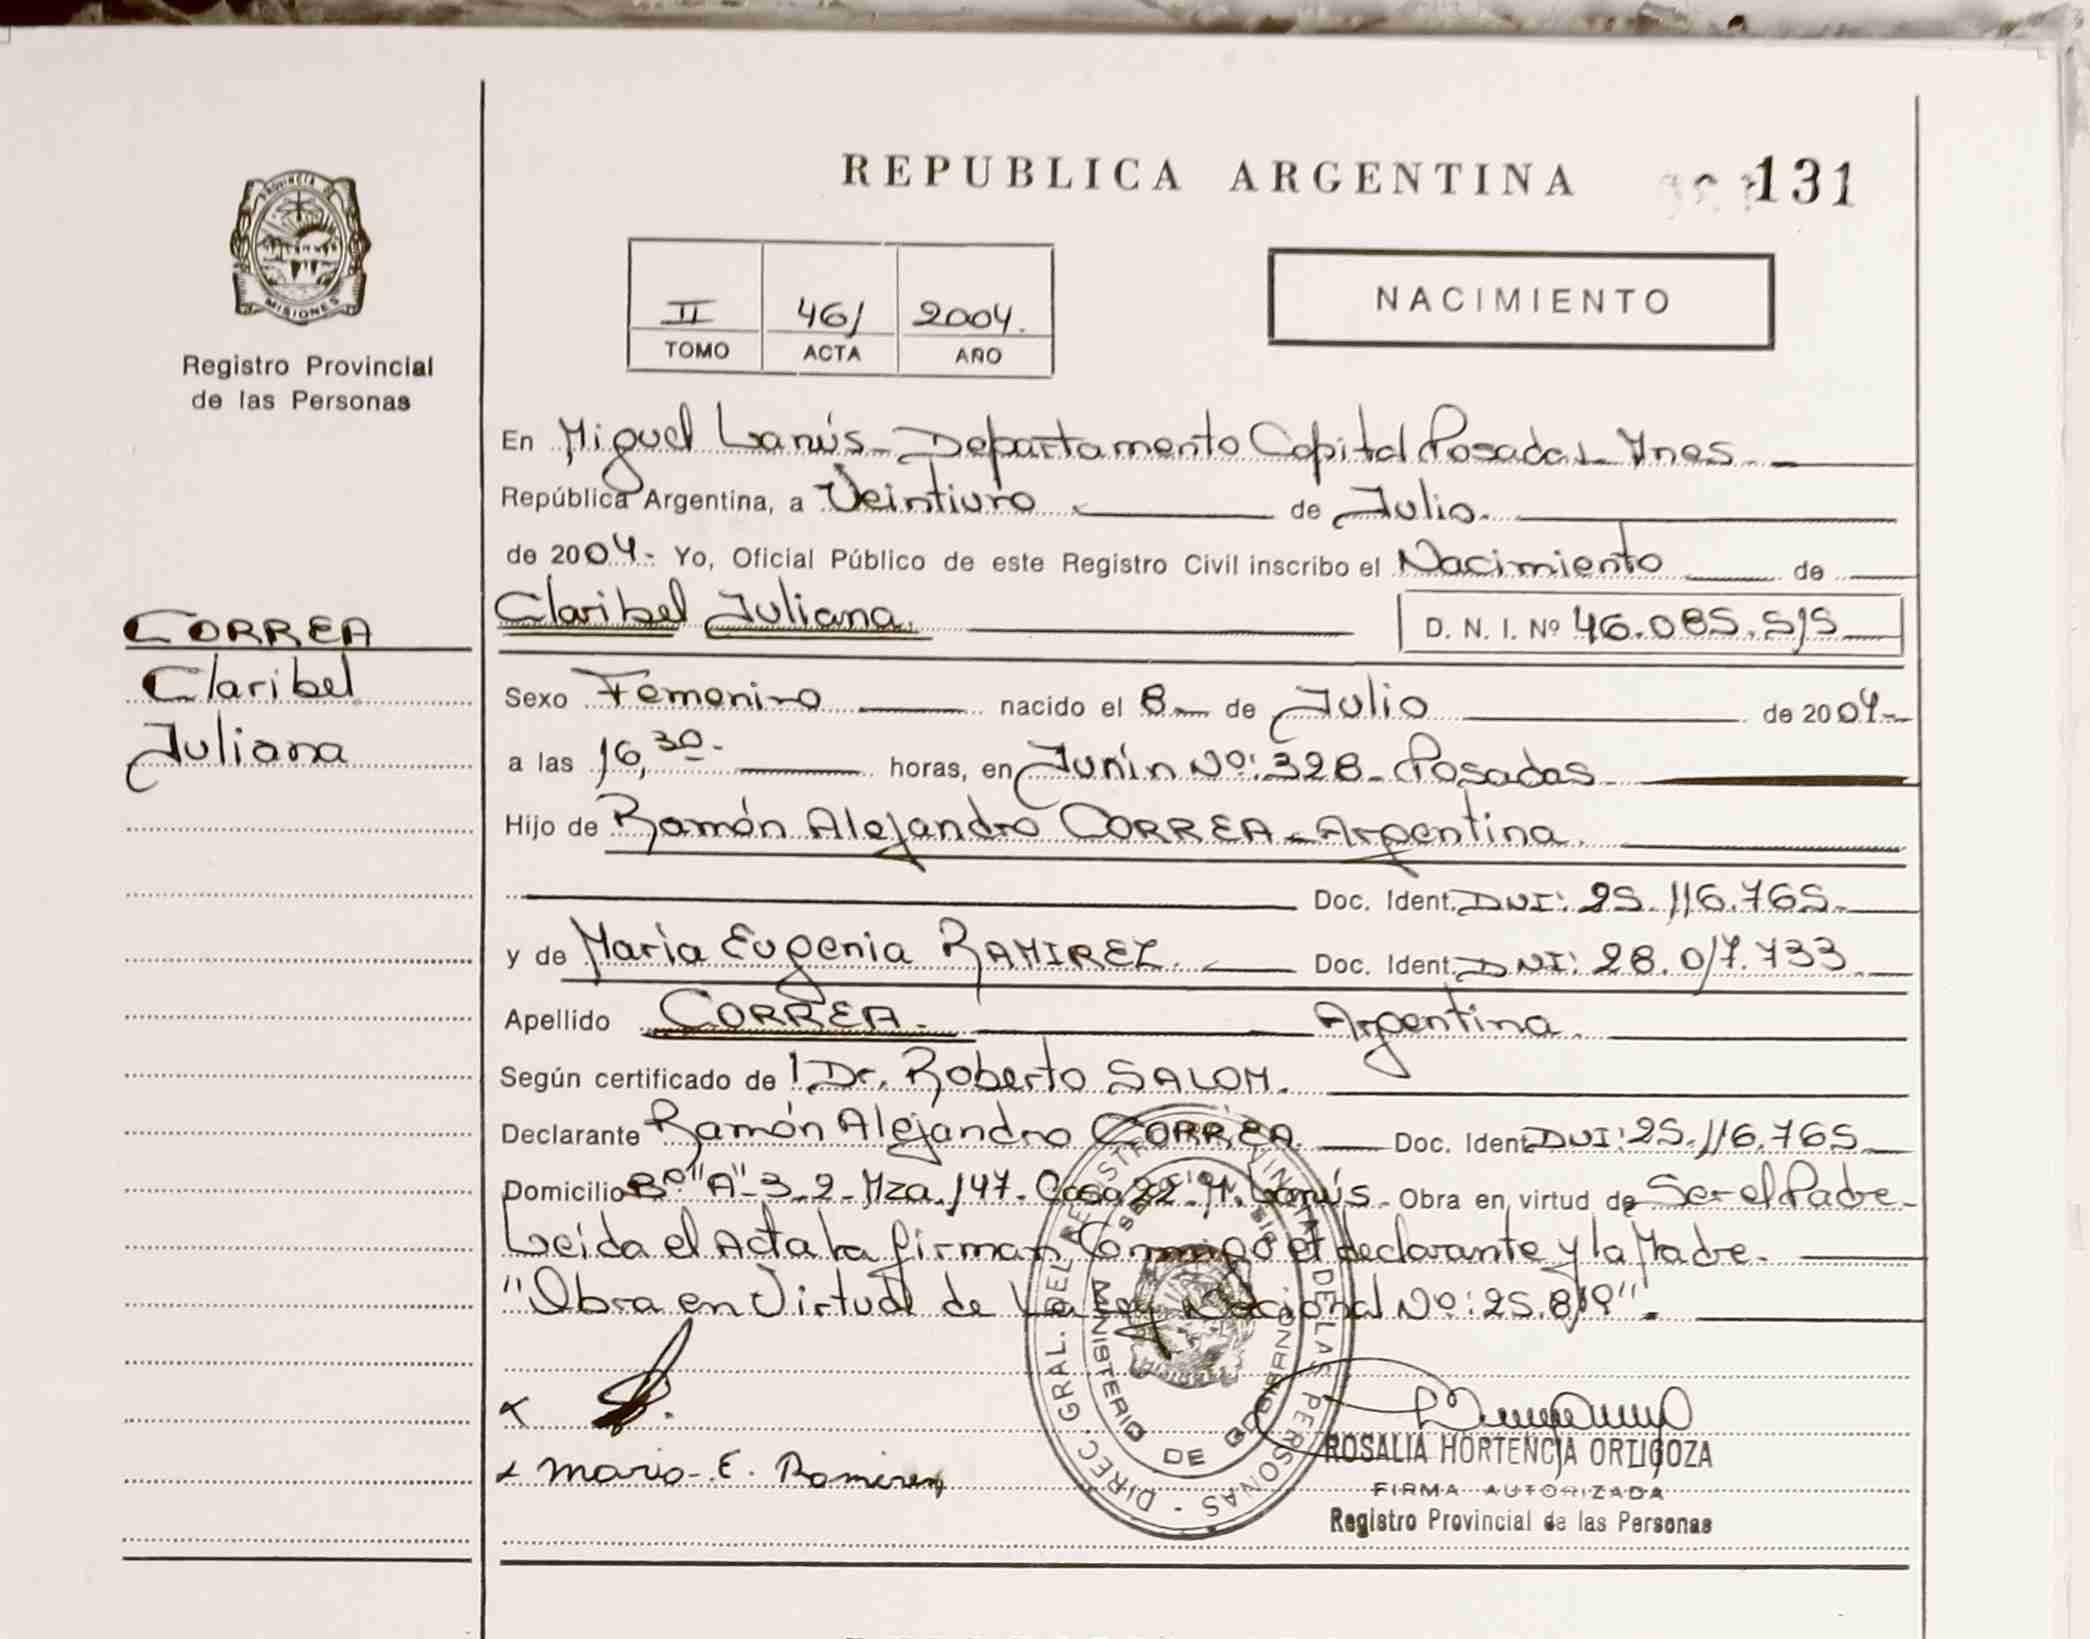 REPUBLICA ARGENTINA
131
PROVINCIA DE
MISIONES
Registro Provincial
de las Personas
II 461 2004.
TOMO ACTA AÑO
NACIMIENTO
En Miguel Lanús - Departamento Capital Posadas - Mnes.
República Argentina, a Veintiuno de Julio.
de 2004.- Yo, Oficial Público de este Registro Civil inscribo el Nacimiento de
Claribel Juliana. D. N. I. Nº 46.085.515
CORREA
Claribel
Juliana
Sexo Femenino nacido el 8 de Julio de 2004.-
a las 16,30.- horas, en Junín Nº: 328 - Posadas
Hijo de Ramón Alejandro CORREA - Argentina.
Doc. Ident. DNI: 25.116.765.
y de Maria Eugenia RAMIREZ. Doc. Ident. DNI: 28.017.733
Apellido CORREA. Argentina.
Según certificado de l Dr. Roberto SALOM.
Declarante Ramón Alejandro CORREA. Doc. Ident. DNI: 25.116.765
Domicilio Bº "A" - 3.2 - Mza. 147. Casa 22. M. Lanús. Obra en virtud de Ser el Padre
Leida el Acta la firman Conmigo el declarante y la Madre.
"Obra en Virtud de La Ley Nacional Nº: 25.819".
Maria E. Ramirez
DIREC. GRAL. DEL REGISTRO PROVINCIAL DE LAS PERSONAS
MINISTERIO DE GOBIERNO
ROSALIA HORTENCIA ORTIGOZA
FIRMA AUTORIZADA
Registro Provincial de las Personas